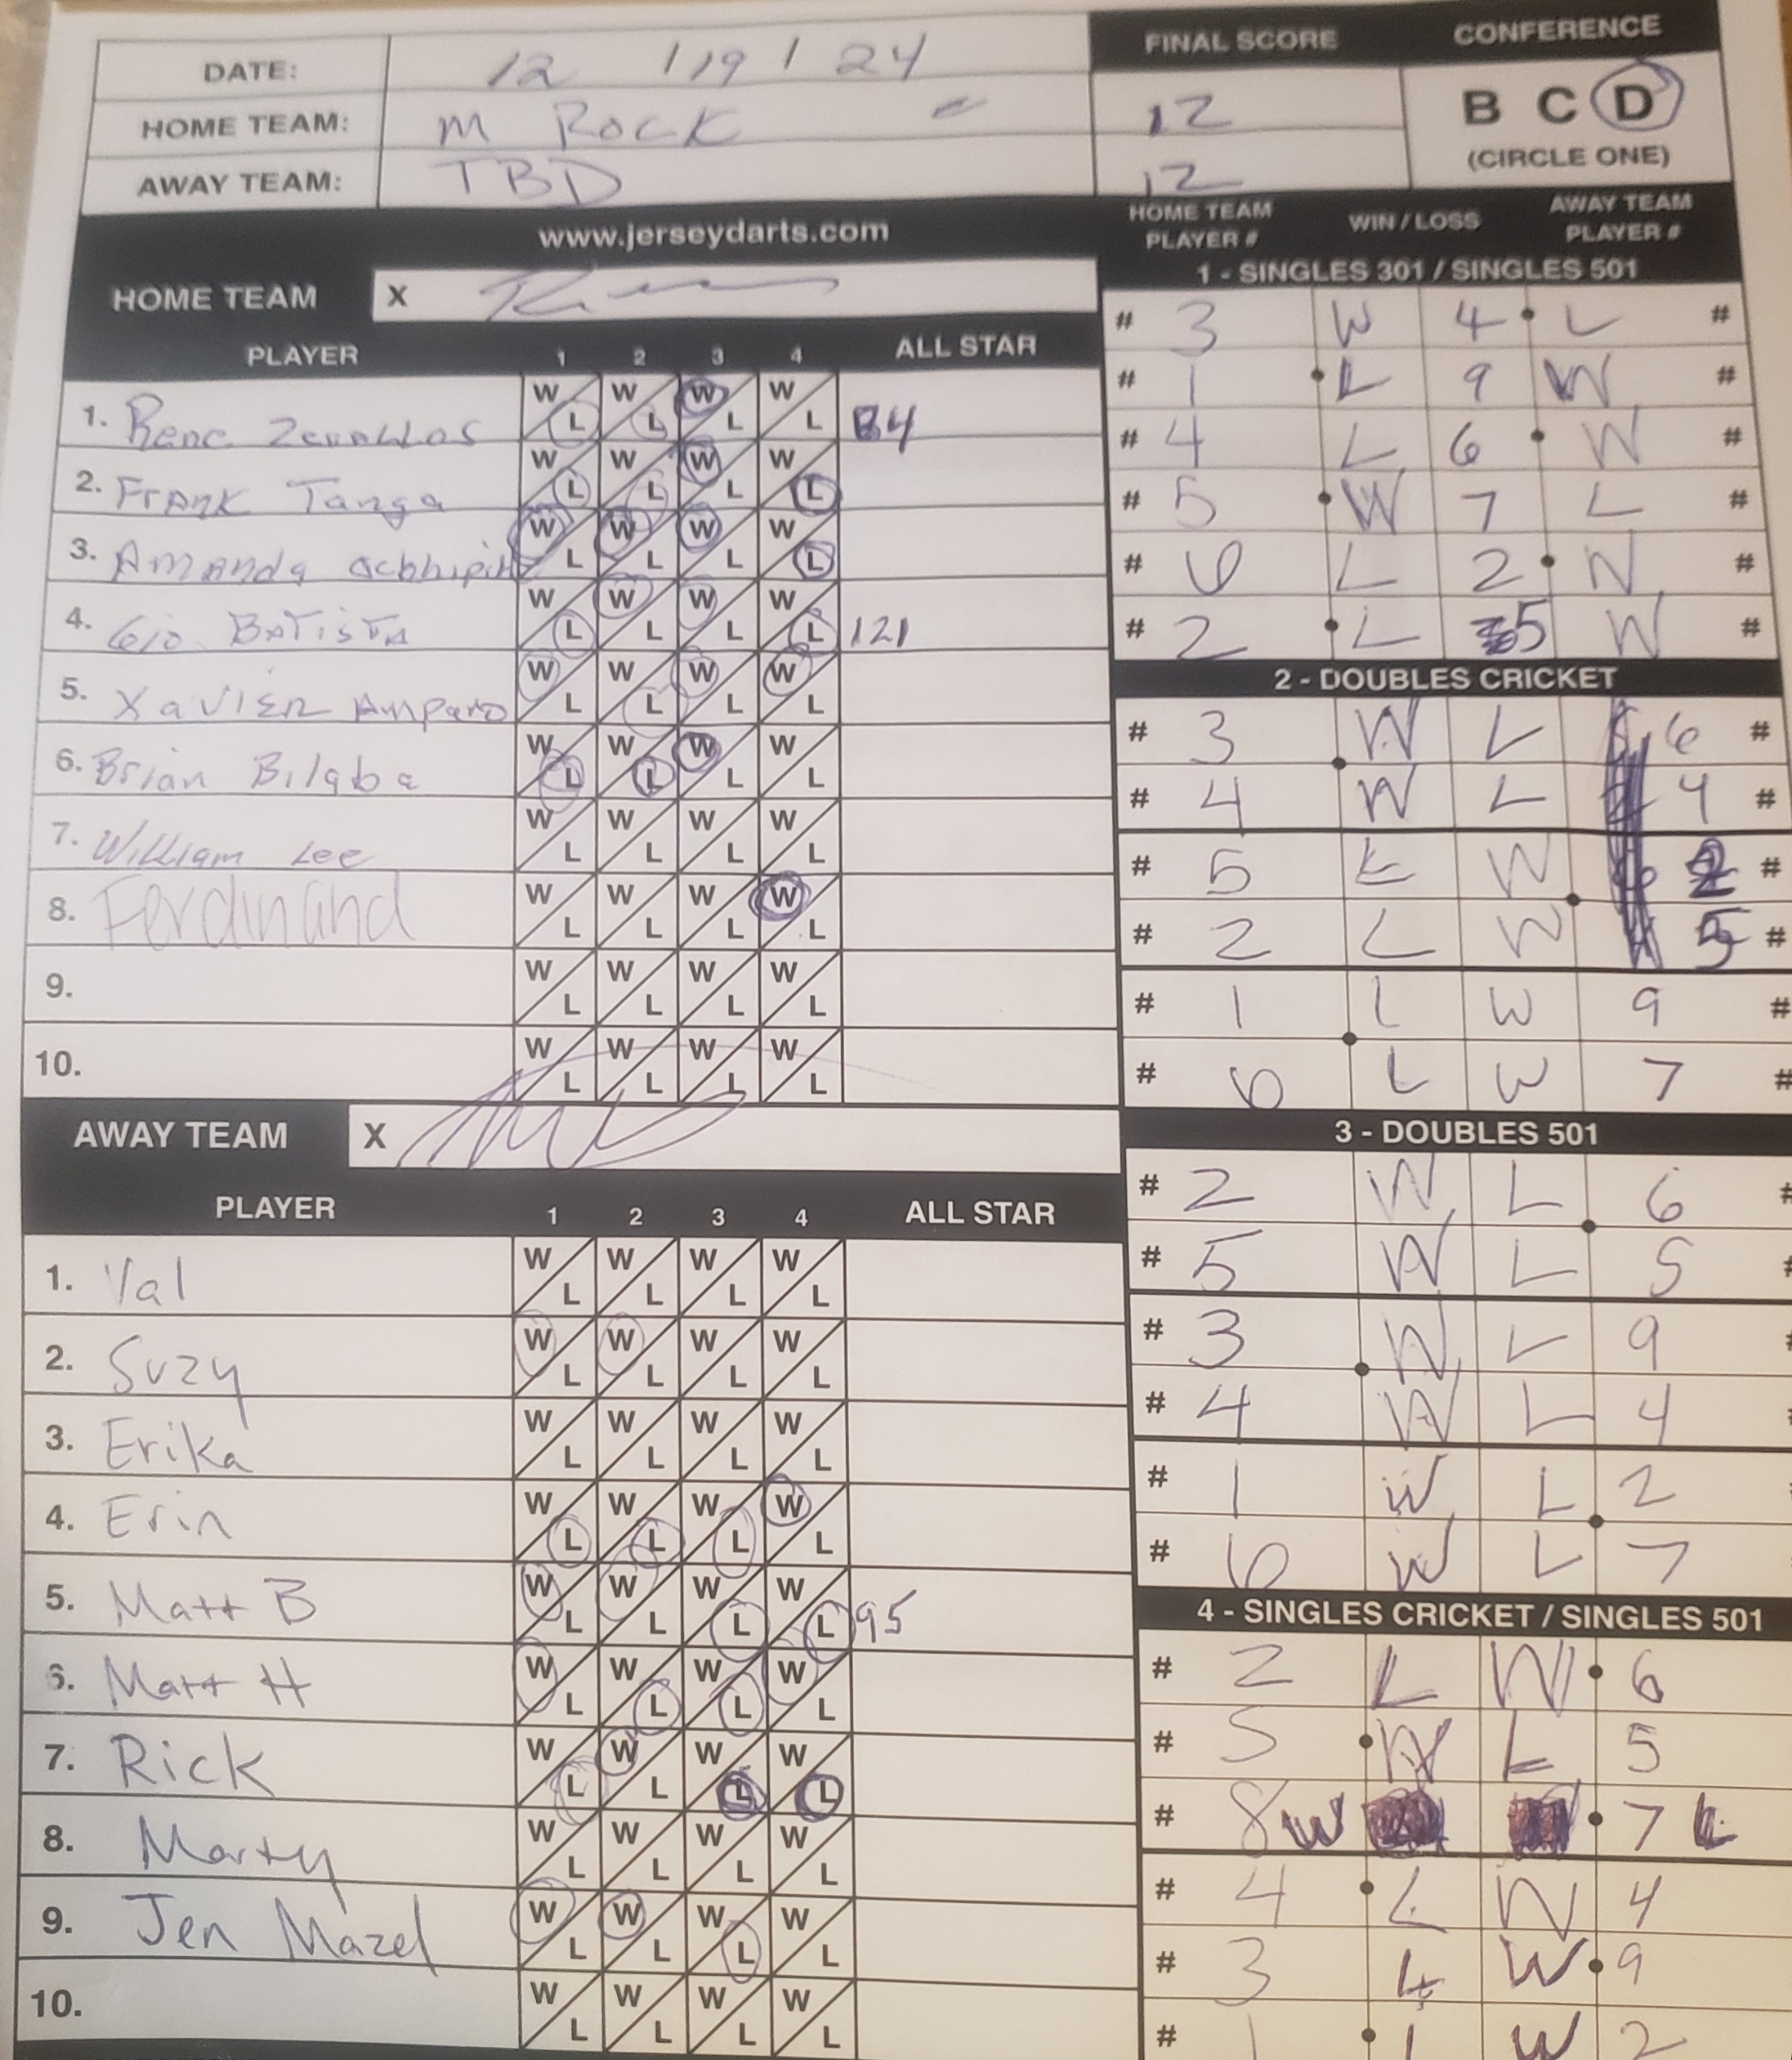 DATE: 12 / 19 / 24
HOME TEAM: M ROCK
AWAY TEAM: TBD
FINAL SCORE
12
12
CONFERENCE
B C D
(CIRCLE ONE)
www.jerseydarts.com
HOME TEAM X
PLAYER 1 2 3 4 ALL STAR
1. Rene Zevallos W L W L W L W L 84
2. Frank Tanga W L W L W L W L
3. Amanda W L W L W L W L
4. Gio BATISTA W L W L W L W L 121
5. XaVIER Amparo W L W L W L W L
6. Brian Bilaba W L W L W L W L
7. William Lee W L W L W L W L
8. Ferdinand W L W L W L W L
9. W L W L W L W L
10. W L W L W L W L
AWAY TEAM X
PLAYER 1 2 3 4 ALL STAR
1. Val W L W L W L W L
2. Suzy W L W L W L W L
3. Erika W L W L W L W L
4. Erin W L W L W L W L
5. Matt B W L W L W L W L 95
6. Matt H W L W L W L W L
7. Rick W L W L W L W L
8. Marty W L W L W L W L
9. Jen Mazel W L W L W L W L
10. W L W L W L W L
HOME TEAM PLAYER # WIN / LOSS AWAY TEAM PLAYER #
1 - SINGLES 301 / SINGLES 501
# 3 W 4 L #
# 1 L 9 W #
# 4 L 6 W #
# 5 W 7 L #
# 6 L 2 W #
# 2 L 5 W #
2 - DOUBLES CRICKET
# 3 W L 6 #
# 4 W L 4 #
# 5 L W 2 #
# 2 L W 5 #
# 1 L W 9 #
# 6 L W 7 #
3 - DOUBLES 501
# 2 W L 6 #
# 5 W L 5 #
# 3 W L 9
# 4 W L 4
# 1 W L 2
# 6 W L 7
4 - SINGLES CRICKET / SINGLES 501
# 2 L W 6
# 5 W L 5
# 8 W 7 L
# 4 L W 4
# 3 L W 9
# 1 L W 2